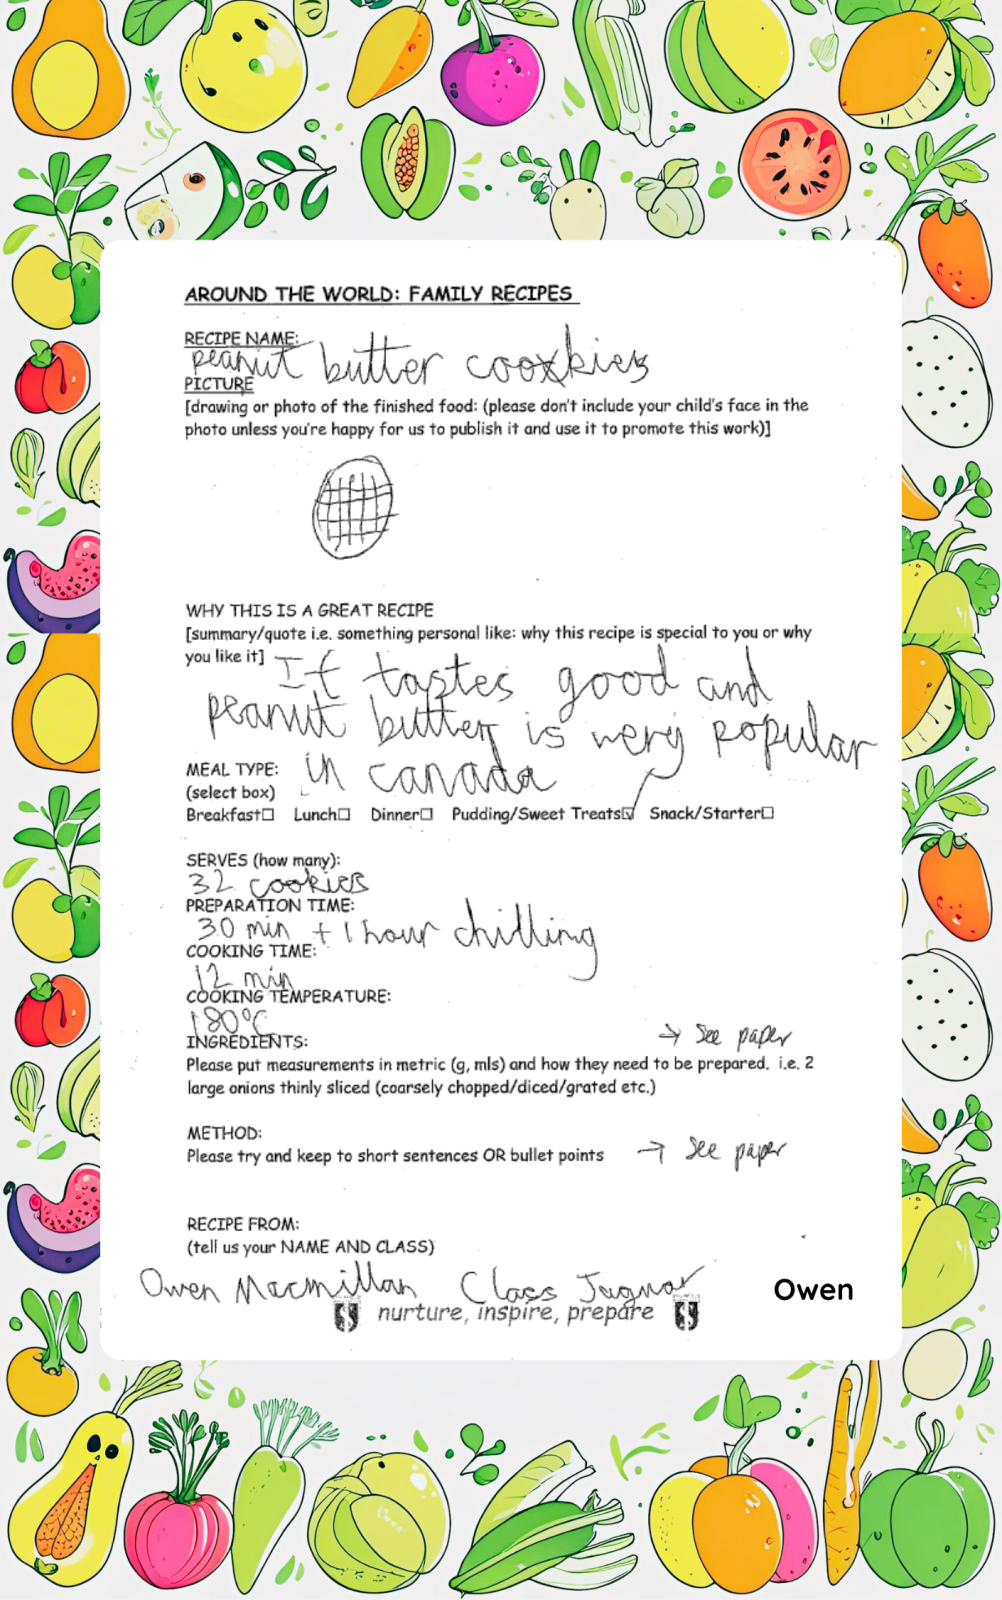 AROUND THE WORLD: FAMILY RECIPES
RECIPE NAME:
peanut butter cooxkies
PICTURE
[drawing or photo of the finished food: (please don't include your child's face in the
photo unless you're happy for us to publish it and use it to promote this work)]
WHY THIS IS A GREAT RECIPE
[summary/quote i.e. something personal like: why this recipe is special to you or why
you like it] It tastes good and
peanut butter is very popular
in canada
MEAL TYPE:
(select box)
Breakfast☐ Lunch☐ Dinner☐ Pudding/Sweet Treats☑ Snack/Starter☐
SERVES (how many):
32 cookies
PREPARATION TIME:
30 min + 1 hour chilling
COOKING TIME:
12 min
COOKING TEMPERATURE:
180°C
INGREDIENTS: → See paper
Please put measurements in metric (g, mls) and how they need to be prepared. i.e. 2
large onions thinly sliced (coarsely chopped/diced/grated etc.)
METHOD:
Please try and keep to short sentences OR bullet points → See paper
RECIPE FROM:
(tell us your NAME AND CLASS)
Owen Macmillan Class Jaguar
Owen
nurture, inspire, prepare